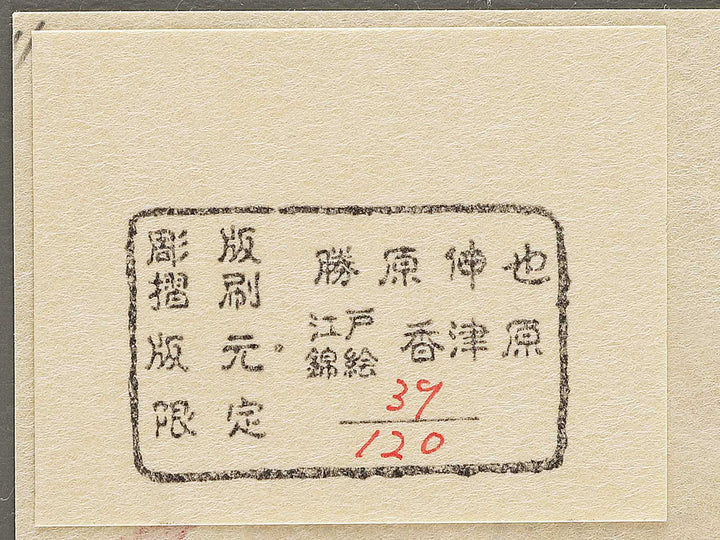 彫版 勝原伸也
摺刷
版元。 江戸錦絵 香津原
限定 39/120